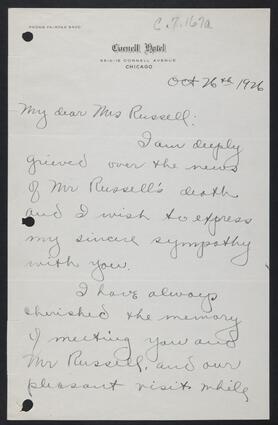 C.T.167a
Cornell Hotel
CHICAGO
Oct 26th 1926
My dear Mrs Russell:
I am deeply
grieved over the news
of Mr Russell's death
and I wish to express
my sincere sympathy
with you.
I have always
cherished the memory
of meeting you and
Mr Russell, and our
pleasant visits while